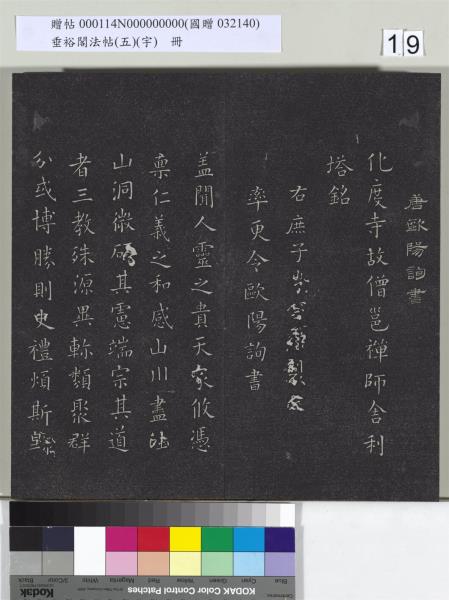 贈帖 000114N000000000(國贈 032140)
垂裕閣法帖(五)(宇) 冊
19
唐歐陽詢書
化度寺故僧邕禪師舍利
塔銘
右庶子
率更令歐陽詢書
蓋聞人靈之貴天攸憑
稟仁義之和感山川盡
山洞微其憲端宗其道
者三教殊源異軫類聚群
分或博勝則史禮煩斯
Blue
Cyan
Green
Yellow
Red
Magenta
White
3/Color
Black
Kodak
KODAK Color Control Patches